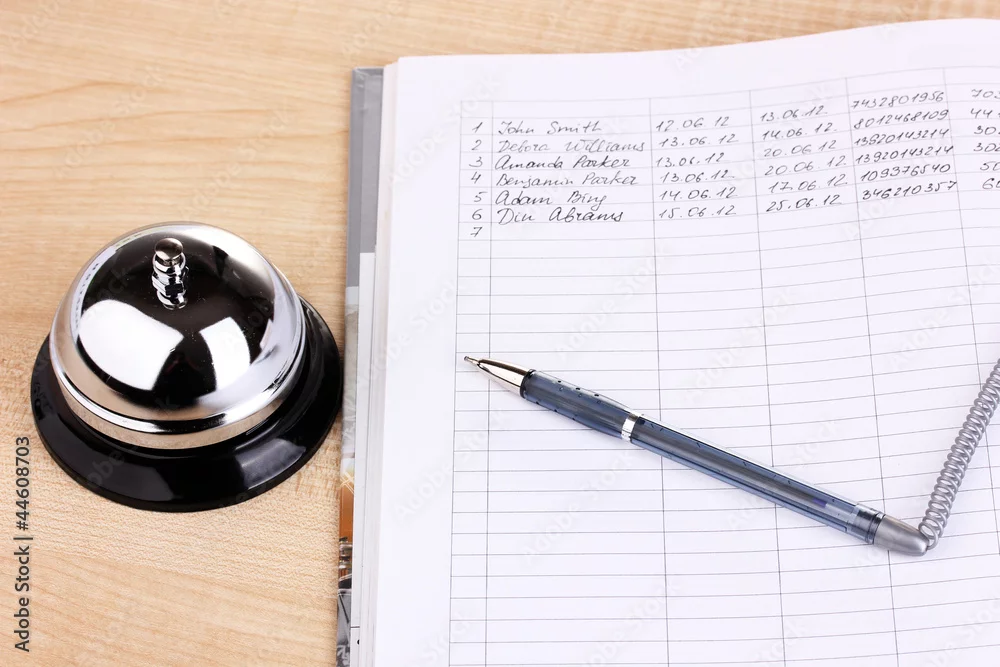 1 John Smith 12.06.12 13.06.12 7432801956 703
2 Debora Williams 13.06.12 14.06.12 8012468109 44
3 Amanda Parker 13.06.12 20.06.12 13920143214 302
4 Benjamin Parker 13.06.12 20.06.12 13920143214 302
5 Adam Bing 14.06.12 17.06.12 109376540 50
6 Din Abrams 15.06.12 25.06.12 346210357 60
7
Adobe Stock | #44608703